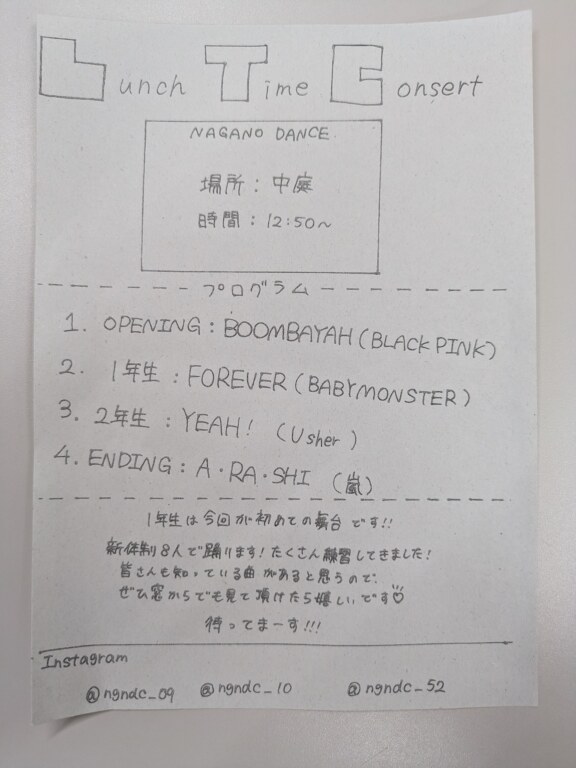 Lunch Time Consert
NAGANO DANCE.
場所：中庭
時間：12:50〜
プログラム
1. OPENING : BOOMBAYAH (BLACK PINK)
2. 1年生 : FOREVER (BABYMONSTER)
3. 2年生 : YEAH! (Usher)
4. ENDING : A・RA・SHI (嵐)
1年生は今回が初めての舞台です!!
新体制8人で踊ります！たくさん練習してきました！
皆さんも知っている曲があると思うので、
ぜひ窓からでも見て頂けたら嬉しいです♡
待ってまーす!!!
Instagram
@ngndc_09 @ngndc_10 @ngndc_52